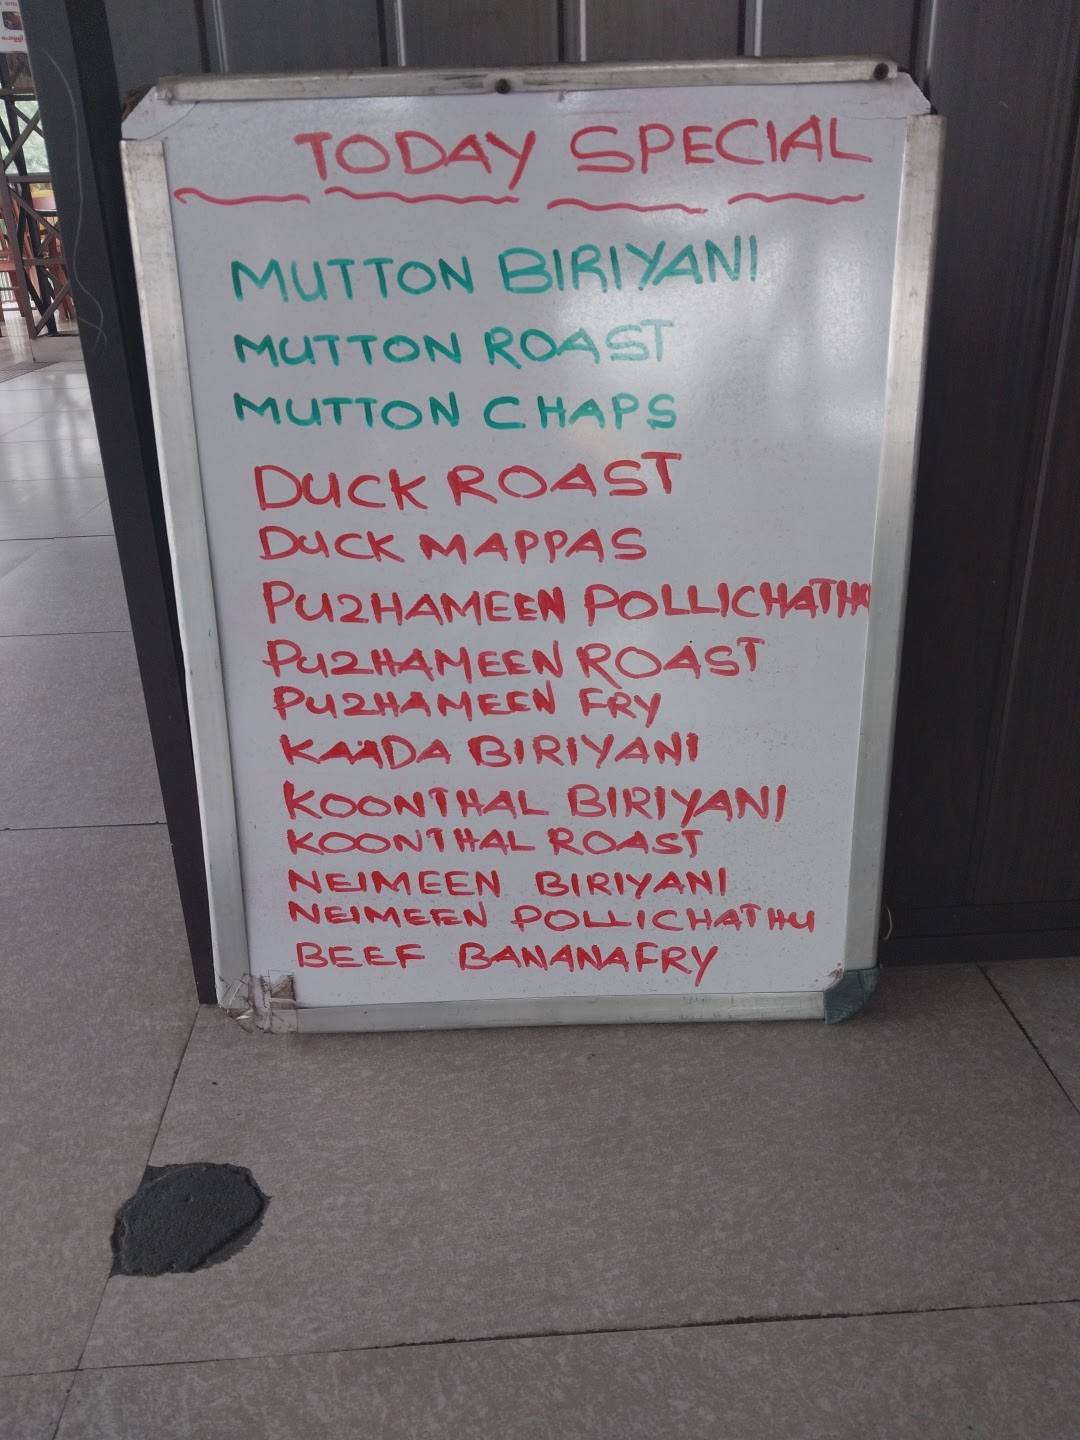 TODAY SPECIAL
MUTTON BIRIYANI
MUTTON ROAST
MUTTON CHAPS
DUCK ROAST
DUCK MAPPAS
PUZHAMEEN POLLICHATHU
PUZHAMEEN ROAST
PUZHAMEEN FRY
KAADA BIRIYANI
KOONTHAL BIRIYANI
KOONTHAL ROAST
NEIMEEN BIRIYANI
NEIMEEN POLLICHATHU
BEEF BANANAFRY